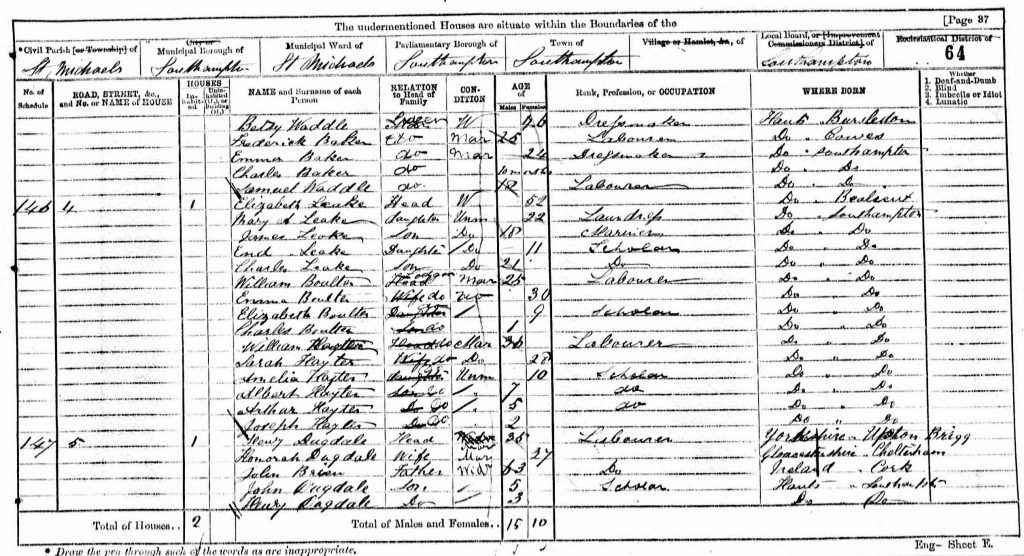 The undermentioned Houses are situate within the Boundaries of the [Page 37
*Civil Parish [or Township] of St Michaels
City or Municipal Borough of Southampton
Municipal Ward of St Michaels
Parliamentary Borough of Southampton
Town of Southampton
Village or Hamlet, &c., of
Local Board, or [Improvement Commissioners District] of Southampton
Ecclesiastical District of 64
No. of Schedule
ROAD, STREET, &c., and No. or NAME of HOUSE
HOUSES
Inhabited
Uninhabited (U.), or Building (B.)
NAME and Surname of each Person
RELATION to Head of Family
CONDITION
AGE of
Males Females
Rank, Profession, or OCCUPATION
WHERE BORN
Whether
1. Deaf-and-Dumb
2. Blind
3. Imbecile or Idiot
4. Lunatic
Betsy Waddle Lodger W 76 Dressmaker Hants Bursledon
Frederick Baker Do Mar 25 Labourer Do Cowes
Emma Baker do Mar 24 Dressmaker Do Southampton
Charles Baker do 10 months Do Do
Samuel Waddle do 18 Labourer Do Do
146 4 1 Elizabeth Leake Head W 52 Do
Mary A Leake daughter Unm 22 Laundress Do Southampton
James Leake Son Do 18 Mariner Do Do
Leake Daughter Do 11 Scholar Do Do
Charles Leake Son Do 21 Do Do Do
William Boulter Head Mar 25 Labourer Do Do
Emma Boulter Wife do Do 30 Do Do
Elizabeth Boulter Daughter 9 Scholar Do Do
Charles Boulter Son do 1 Do Do
William Hayter Head do Mar 36 Labourer Do Do
Sarah Hayter Wife do Do 28 Do Do
Amelia Hayter daughter Unm 10 Scholar Do Do
Albert Hayter Son do 7 do Do Do
Arthur Hayter Do Do 5 do Do Do
Joseph Hayter Do Do 2 Do Do
147 5 1 Henry Dugdale Head Mar 35 Labourer Yorkshire Brigg
Honorah Dugdale Wife Mar 27 Gloucestershire Cheltenham
John Brien Father Widr 63 Do Ireland Cork
John Dugdale Son 5 Scholar Hants Southampton
Henry Dugdale Do 3 Do Do
Total of Houses.. 2 Total of Males and Females.. 15 10
* Draw the pen through such of the words as are inappropriate.
Eng- Sheet E.